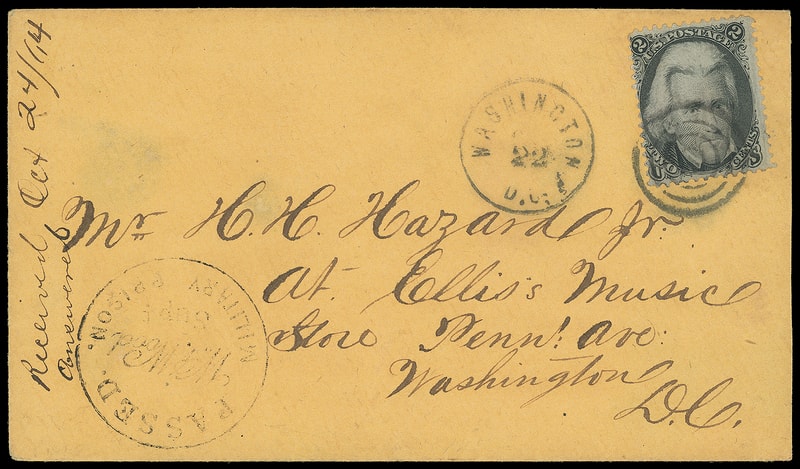 Received Oct 24/64
Answered
2 U.S. POSTAGE 2
TWO CENTS
WASHINGTON
22
D.C.
Mr. H. H. Hazard Jr.
At. Ellis's Music
Store Penn! Ave.
Washington
D.C.
PASSED.
MILITARY PRISON.
SUPT